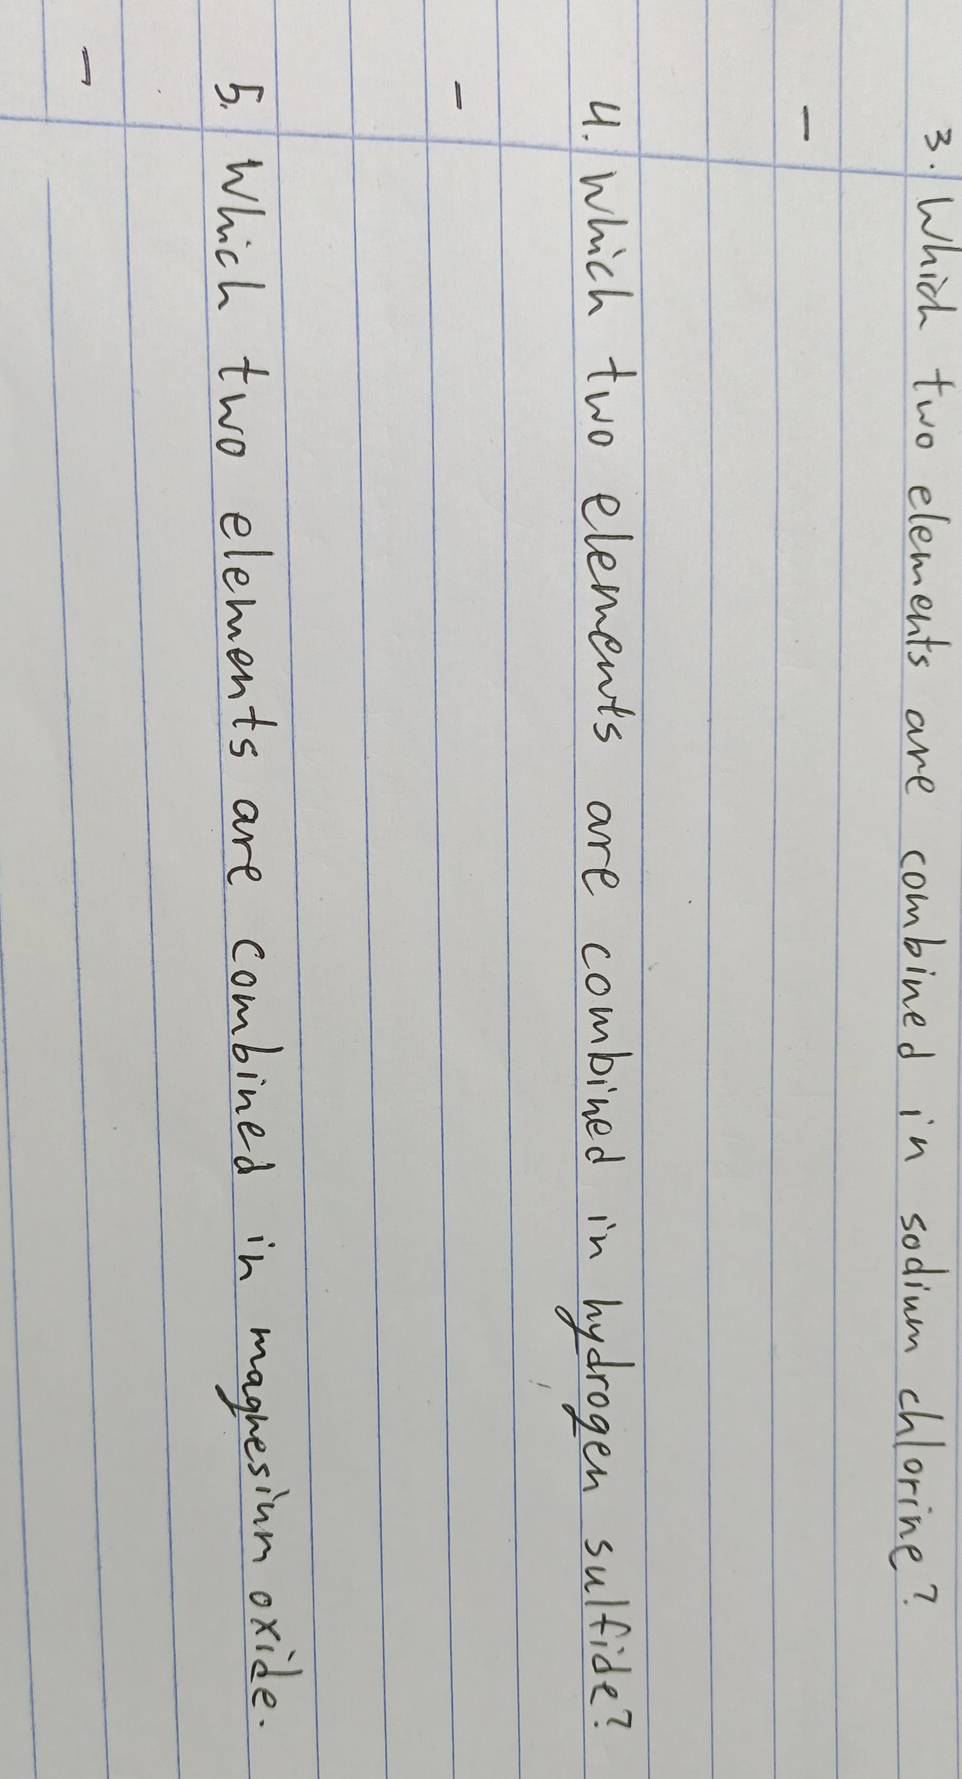 3. Which two elements are combined in sodium chlorine?
-
4. Which two elements are combined in hydrogen sulfide?
-
5. Which two elements are combined in magnesium oxide.
-